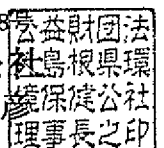 公益財団法
社島根県環
境保健公社
彦
理事長之印